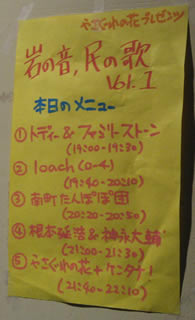 やさぐれの花プレゼンツ
岩の音,民の歌
Vol.1
本日のメニュー
①トディー&ファミリーストーン
(19:00-19:30)
②loach(0-4)
(19:40-20:10)
③南町たんぽぽ団
(20:20-20:50)
④根本延浩&神永大輔
(21:00-21:30)
⑤やさぐれの花+ケニタナ!
(21:40-22:10)